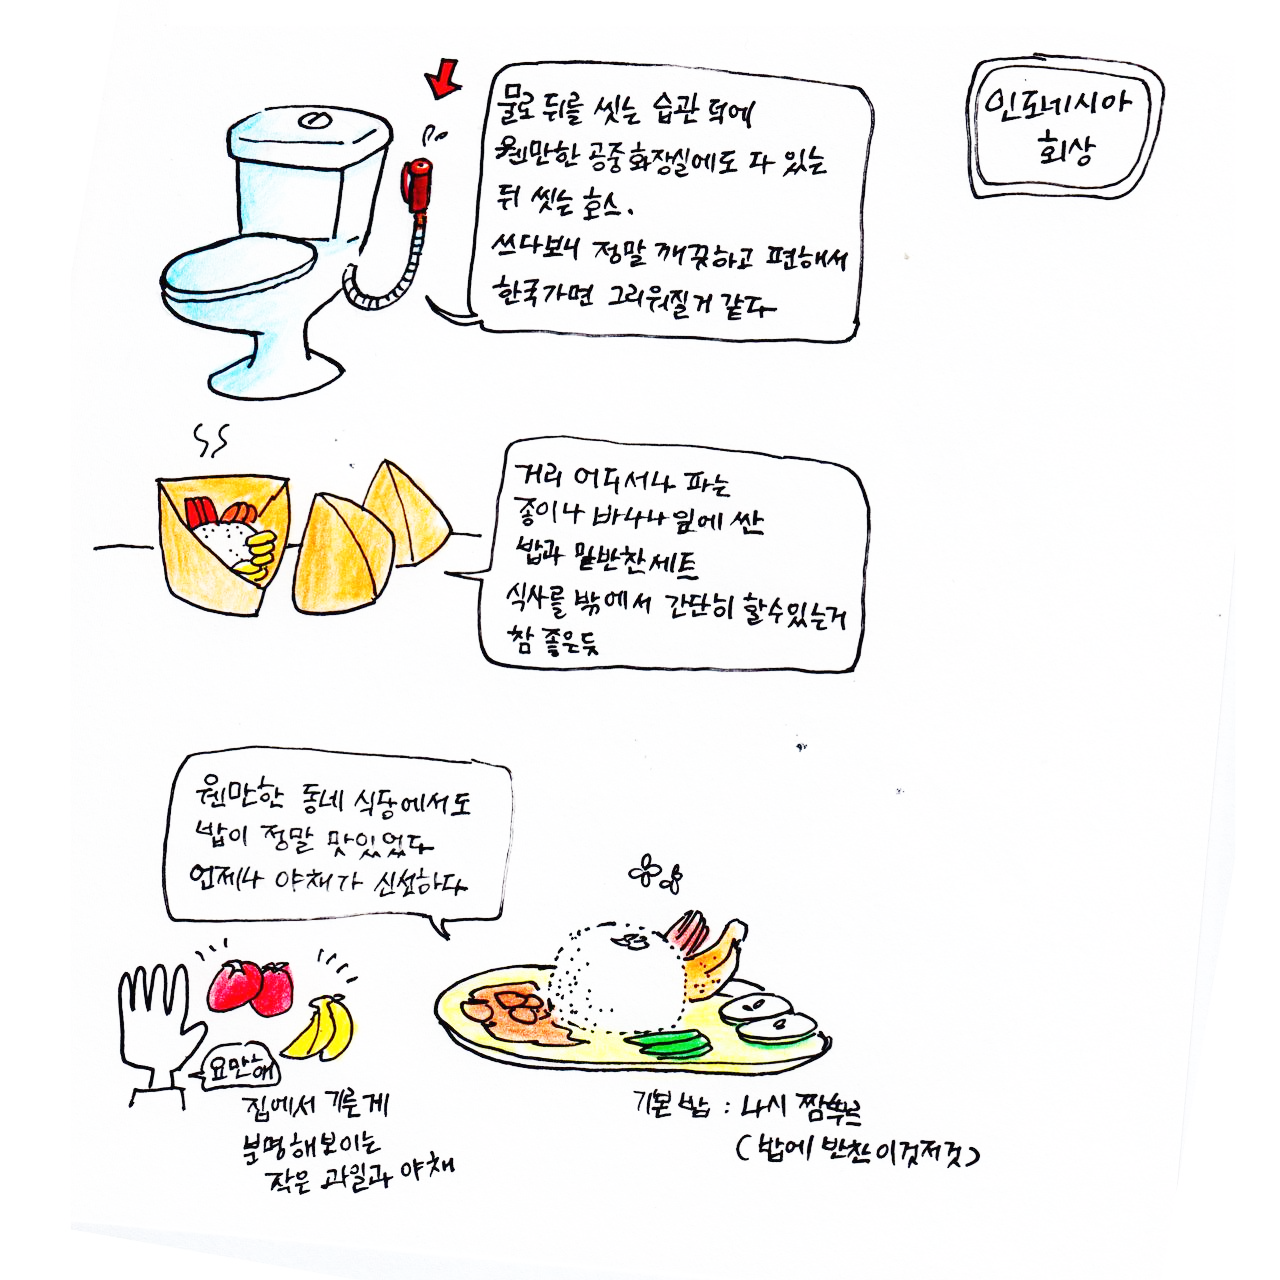 인도네시아
회상
물로 뒤를 씻는 습관 덕에
웬만한 공중화장실에도 다 있는
뒤 씻는 호스.
쓰다보니 정말 깨끗하고 편해서
한국가면 그리워질거 같다
거리 어디서나 파는
종이나 바나나잎에 싼
밥과 밑반찬세트
식사를 밖에서 간단히 할수있는거
참 좋은듯
웬만한 동네 식당에서도
밥이 정말 맛있었다
언제나 야채가 신선하다
요만해
집에서 기른게
분명해보이는
작은 과일과 야채
기본밥 : 나시 짬뿌르
(밥에 반찬이것저것)